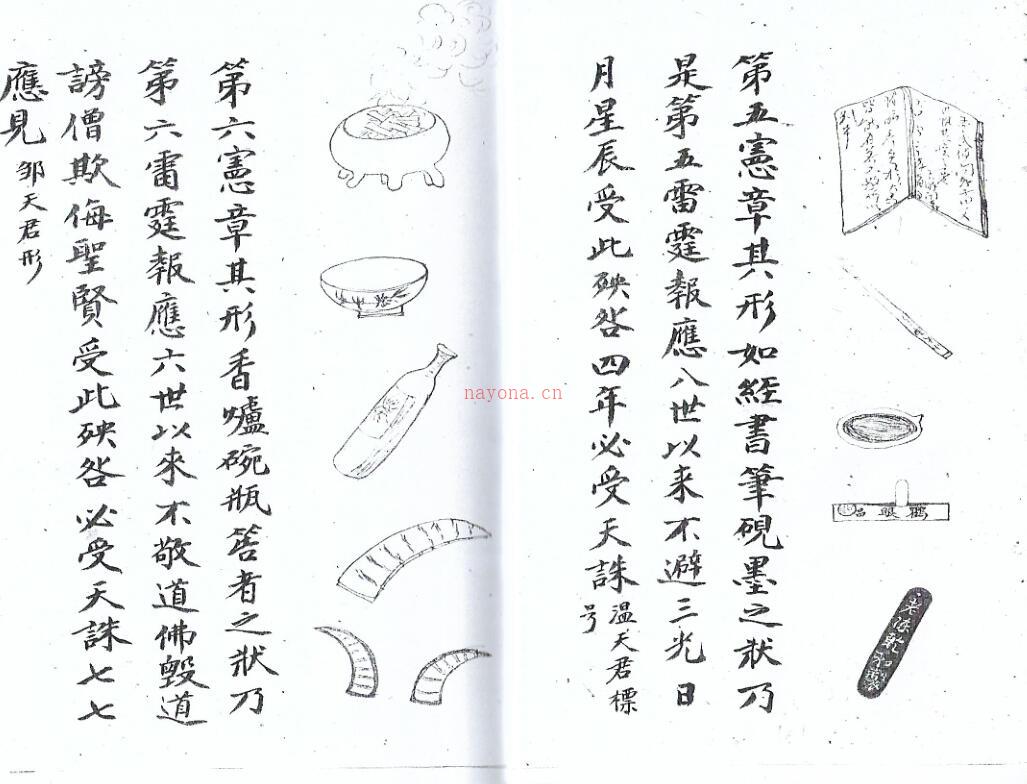 第五憲章其形如經書筆硯墨之狀乃
是第五雷霆報應八世以来不避三光日
月星辰受此殃咎四年必受天誅
温天君標
号
第六憲章其形香爐碗瓶筶者之狀乃
第六雷霆報應六世以來不敬道佛毀道
謗僧欺侮聖賢受此殃咎必受天誅七七
應見
邹天君形
nayona.cn